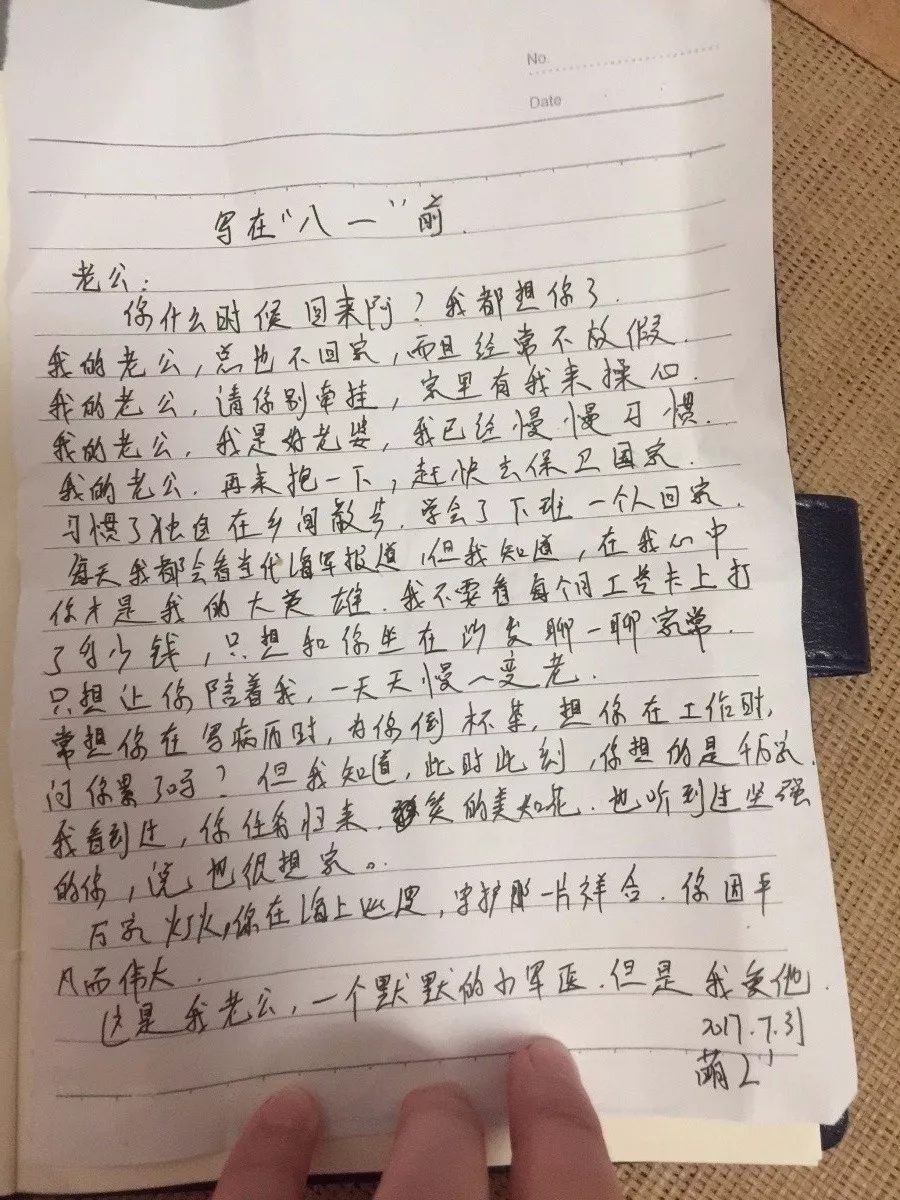 No.
Date
写在“八一”前.
老公:
你什么时候回来阿?我都想你了.
我的老公,总也不回家,而且经常不放假.
我的老公,请你别牵挂,家里有我来操心.
我的老公,我是好老婆,我已经慢慢习惯.
我的老公.再来抱一下,赶快去保卫国家.
习惯了独自在乡间散步.学会了下班一个人回家.
每天我都会看当代海军报道,但我知道,在我心中
你才是我的大英雄.我不要看每个月工资卡上打
了多少钱,只想和你坐在沙发聊一聊家常.
只想让你陪着我,一天天慢慢变老.
常想你在写病历时,为你倒杯茶,想你在工作时,
问你累了吗?但我知道,此时此刻,你想的是千万家.
我看到过,你任务归来.笑的美如花.也听到过坚强
的你,说也很想家。.
万家灯火,你在海上巡逻,守护那一片祥合.你因平
凡而伟大.
这是我老公,一个默默的小军医.但是我爱他.
2017.7.31
萌